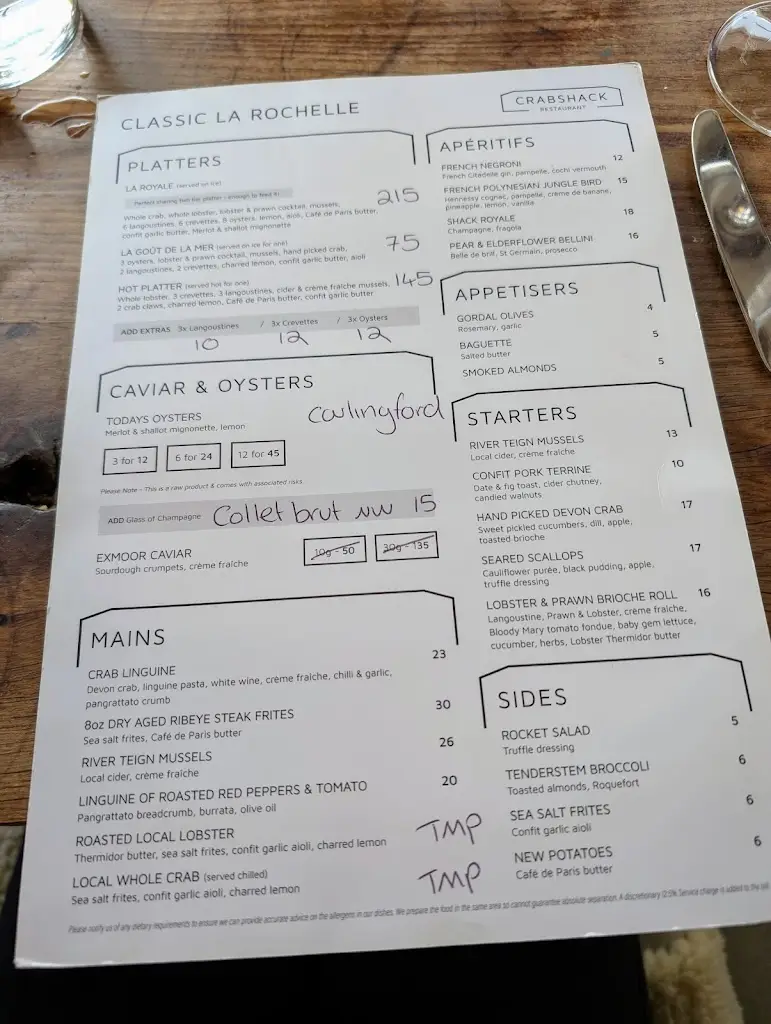 CLASSIC LA ROCHELLE
CRABSHACK
RESTAURANT
PLATTERS
LA ROYALE (served on ice) 215
Perfect sharing hot or platter - enough to feed 4!
Whole crab, whole lobster, lobster & prawn cocktail, mussels,
6 langoustines, 6 crevettes, 8 oysters, lemon, aioli, Café de Paris butter,
confit garlic butter, Merlot & shallot mignonette
LA GOÛT DE LA MER (served on ice for one) 75
3 oysters, lobster & prawn cocktail, mussels, hand picked crab,
2 langoustines, 2 crevettes, charred lemon, confit garlic butter, aioli
HOT PLATTER (served hot for one) 145
Whole lobster, 3 crevettes, 3 langoustines, cider & crème fraîche mussels,
2 crab claws, charred lemon, Café de Paris butter, confit garlic butter
ADD EXTRAS 3x Langoustines / 3x Crevettes / 3x Oysters
10 12 12
CAVIAR & OYSTERS
TODAYS OYSTERS Carlingford
Merlot & shallot mignonette, lemon
3 for 12 6 for 24 12 for 45
Please Note - This is a raw product & comes with associated risks
ADD Glass of Champagne Collet brut NV 15
EXMOOR CAVIAR 10g - 50 30g - 135
Sourdough crumpets, crème fraîche
MAINS
CRAB LINGUINE 23
Devon crab, linguine pasta, white wine, crème fraîche, chilli & garlic,
pangrattato crumb
8oz DRY AGED RIBEYE STEAK FRITES 30
Sea salt frites, Café de Paris butter
RIVER TEIGN MUSSELS 26
Local cider, crème fraîche
LINGUINE OF ROASTED RED PEPPERS & TOMATO 20
Pangrattato breadcrumb, burrata, olive oil
ROASTED LOCAL LOBSTER TMP
Thermidor butter, sea salt frites, confit garlic aioli, charred lemon
LOCAL WHOLE CRAB (served chilled) TMP
Sea salt frites, confit garlic aioli, charred lemon
APÉRITIFS
FRENCH NEGRONI 12
French Citadelle gin, pampelle, cochi vermouth
FRENCH POLYNESIAN JUNGLE BIRD 15
Hennessy cognac, pampelle, creme de banane,
pineapple, lemon, vanilla
SHACK ROYALE 18
Champagne, fragola
PEAR & ELDERFLOWER BELLINI 16
Belle de brill, St Germain, prosecco
APPETISERS
GORDAL OLIVES 4
Rosemary, garlic
BAGUETTE 5
Salted butter
SMOKED ALMONDS 5
STARTERS
RIVER TEIGN MUSSELS 13
Local cider, crème fraîche
CONFIT PORK TERRINE 10
Date & fig toast, cider chutney,
candied walnuts
HAND PICKED DEVON CRAB 17
Sweet pickled cucumbers, dill, apple,
toasted brioche
SEARED SCALLOPS 17
Cauliflower purée, black pudding, apple,
truffle dressing
LOBSTER & PRAWN BRIOCHE ROLL 16
Langoustine, Prawn & Lobster, crème fraîche,
Bloody Mary tomato fondue, baby gem lettuce,
cucumber, herbs, Lobster Thermidor butter
SIDES
ROCKET SALAD 5
Truffle dressing
TENDERSTEM BROCCOLI 6
Toasted almonds, Roquefort
SEA SALT FRITES 6
Confit garlic aioli
NEW POTATOES 6
Café de Paris butter
Please notify us of any dietary requirements to ensure we can provide accurate advice on the allergens in our dishes. We prepare the food in the same area so cannot guarantee absolute separation. A discretionary 12.5% Service charge is added to the bill